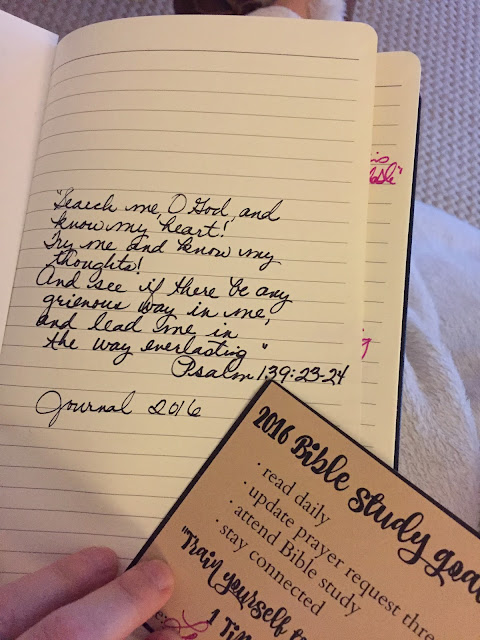 "Search me, O God, and
know my heart!
Try me and know my
thoughts!
And see if there be any
grievous way in me,
and lead me in
the way everlasting"
Psalm 139:23-24
Journal 2016
2016 Bible study goa
· read daily
· update prayer request thr
· attend Bible study
· stay connected
"Train yourself t
1 Tim